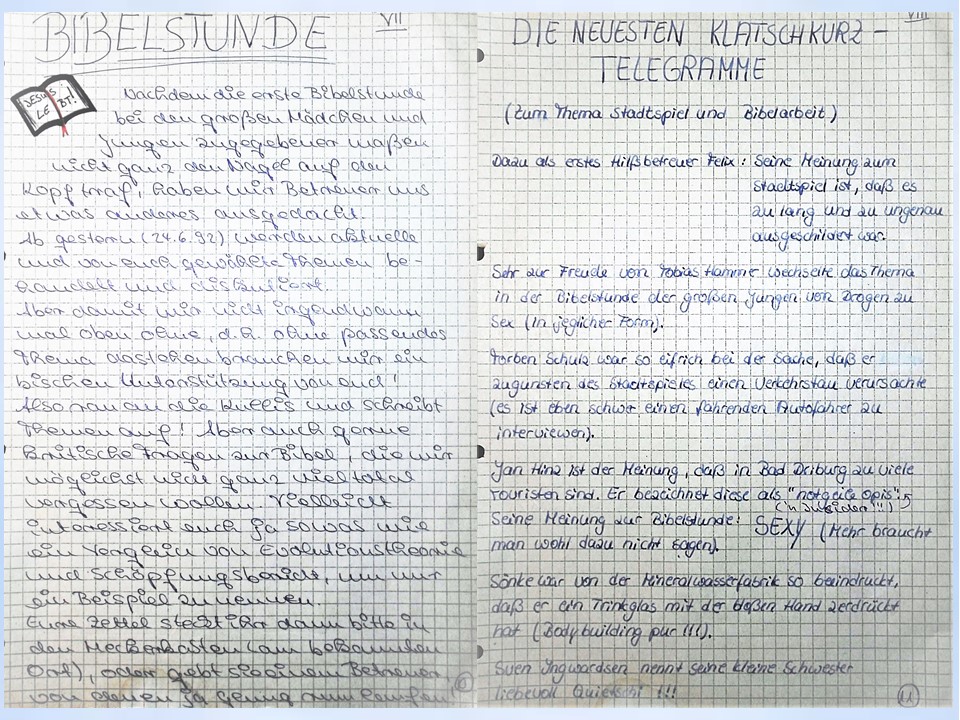 BIBELSTUNDE
VII
JESUS LEBT!
Nachdem die erste Bibelstunde
bei den großen Mädchen und
Jungen zugegebener maßen
nicht ganz den Nagel auf den
Kopf traf, haben wir Betreuer uns
etwas anderes ausgedacht.
Ab gestern (24.6.92) werden aktuelle
und von euch gewählte Themen be-
handelt und diskutiert.
Aber damit wir nicht irgendwann
mal oben ohne, d.h. ohne passendes
Thema dastehen brauchen wir ein
bischen Unterstützung von euch!
Also ran an die Kullis und schreibt
Themen auf! Aber auch gerne
kritische Fragen zur Bibel, die wir
möglichst nich ganz viel total
vergessen wollen. Vielleicht
interessiert euch ja sowas wie
ein Vergleich von Evolutionstheorie
und Schöpfungsbericht, um nur
ein Beispiel zu nennen.
Eure Zettel steckt ihr dann bitte in
den Meckerkasten (am bekannten
Ort), oder gebt sie einem Betreuer,
von denen ja genug rumlaufen!
VIII
DIE NEUESTEN KLATSCHKURZ-
TELEGRAMME
(zum Thema Stadtspiel und Bibelarbeit)
Dazu als erstes Hilfsbetreuer Felix: Seine Meinung zum
Stadtspiel ist, daß es
zu lang und zu ungenau
ausgeschildert war.
Sehr zur Freude von Tobias Hamme wechselte das Thema
in der Bibelstunde der großen Jungen von Drogen zu
Sex (In jeglicher Form).
Torben Schulz war so eifrich bei der Sache, daß er
zugunsten des Stadtspieles einen Verkehrstau verursachte
(es ist eben schwer einen fahrenden Autofahrer zu
interviewen).
Jan Hinz ist der Meinung, daß in Bad Driburg zu viele
Touristen sind. Er bezeichnet diese als "notgeile Opis".
(n Insider!!!)
Seine Meinung zur Bibelstunde: SEXY (Mehr braucht
man wohl dazu nicht sagen).
Sönke war von der Mineralwasserfabrik so beeindruckt,
daß er ein Trinkglas mit der bloßen Hand zerdrückt
hat (Bodybuilding pur !!!).
Sven Ingwardsen nennt seine kleine Schwester
liebevoll Quietschi !!!
11